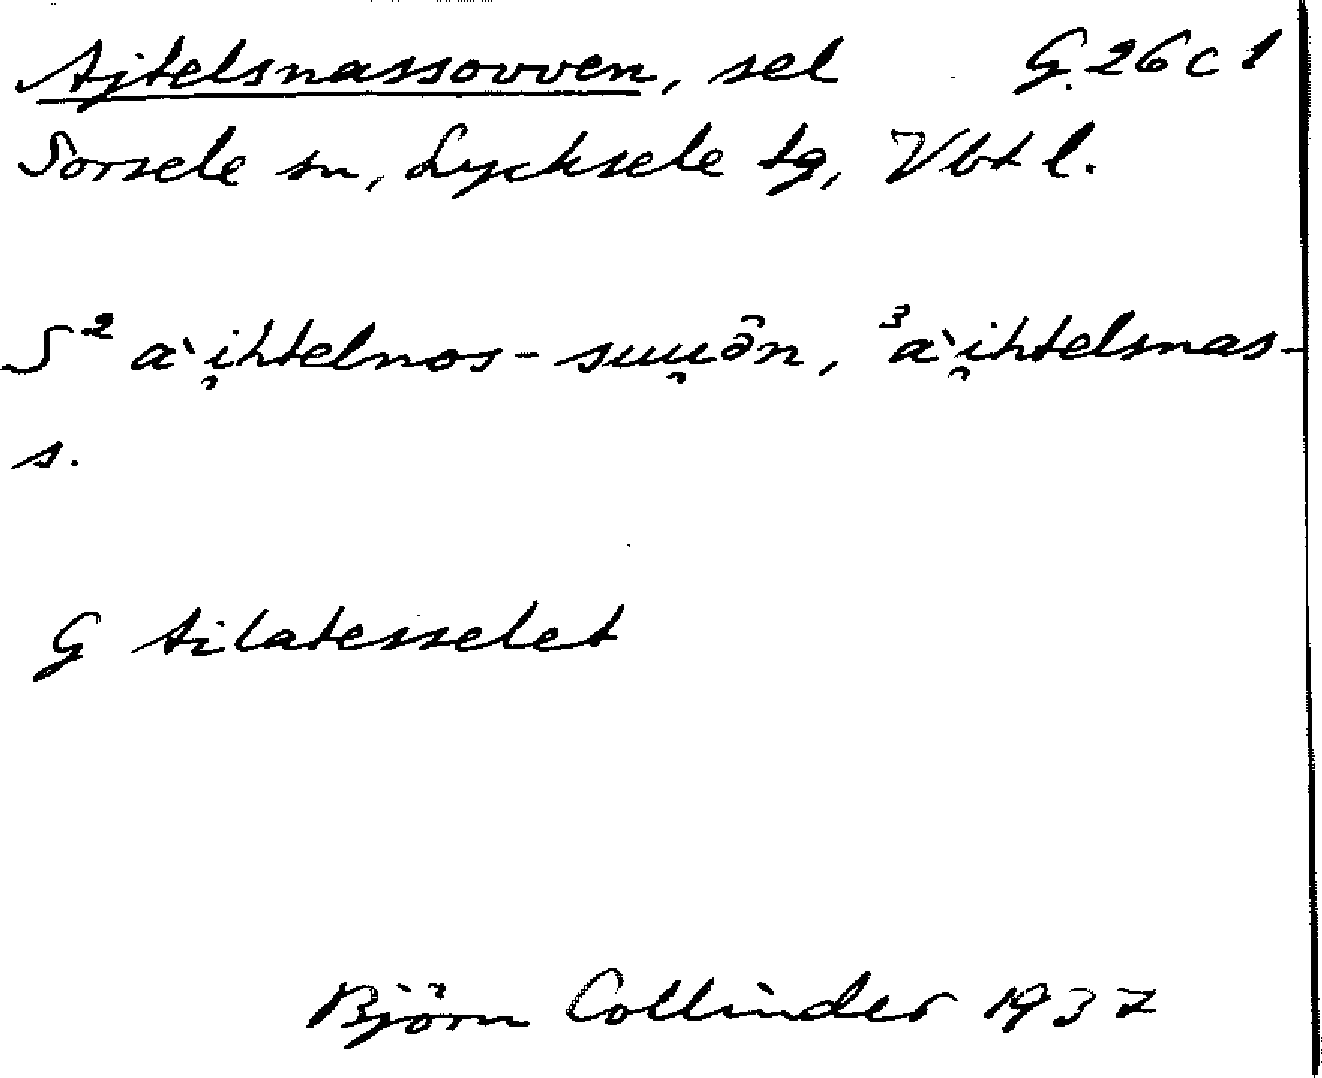 Ajtelsnassovven, sel G. 26 c 1
Sorsele sn, Lycksele tg, Vbt l.
S² a`i̯htelnos-suu̯ə̂n, ³a`i̯htelsnas-
s.
G Ailatesselet
Björn Collinder 1937